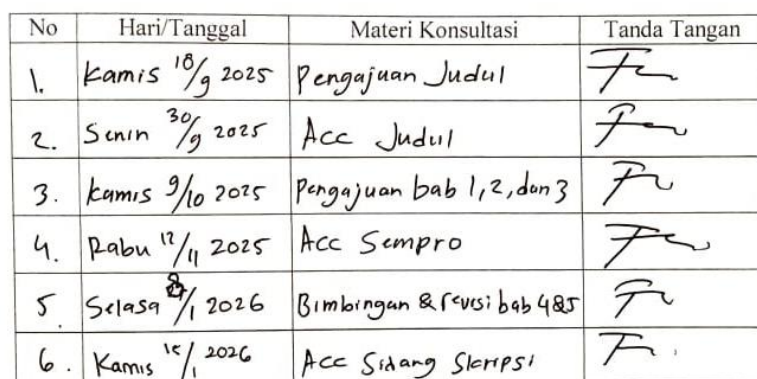 No Hari/Tanggal Materi Konsultasi Tanda Tangan
1. Kamis 18/9 2025 Pengajuan Judul
2. Senin 30/9 2025 Acc Judul
3. Kamis 9/10 2025 Pengajuan bab 1, 2, dan 3
4. Rabu 12/11 2025 Acc Sempro
5. Selasa /1 2026 Bimbingan & revisi bab 4&5
6. Kamis 15/1 2026 Acc Sidang Skripsi